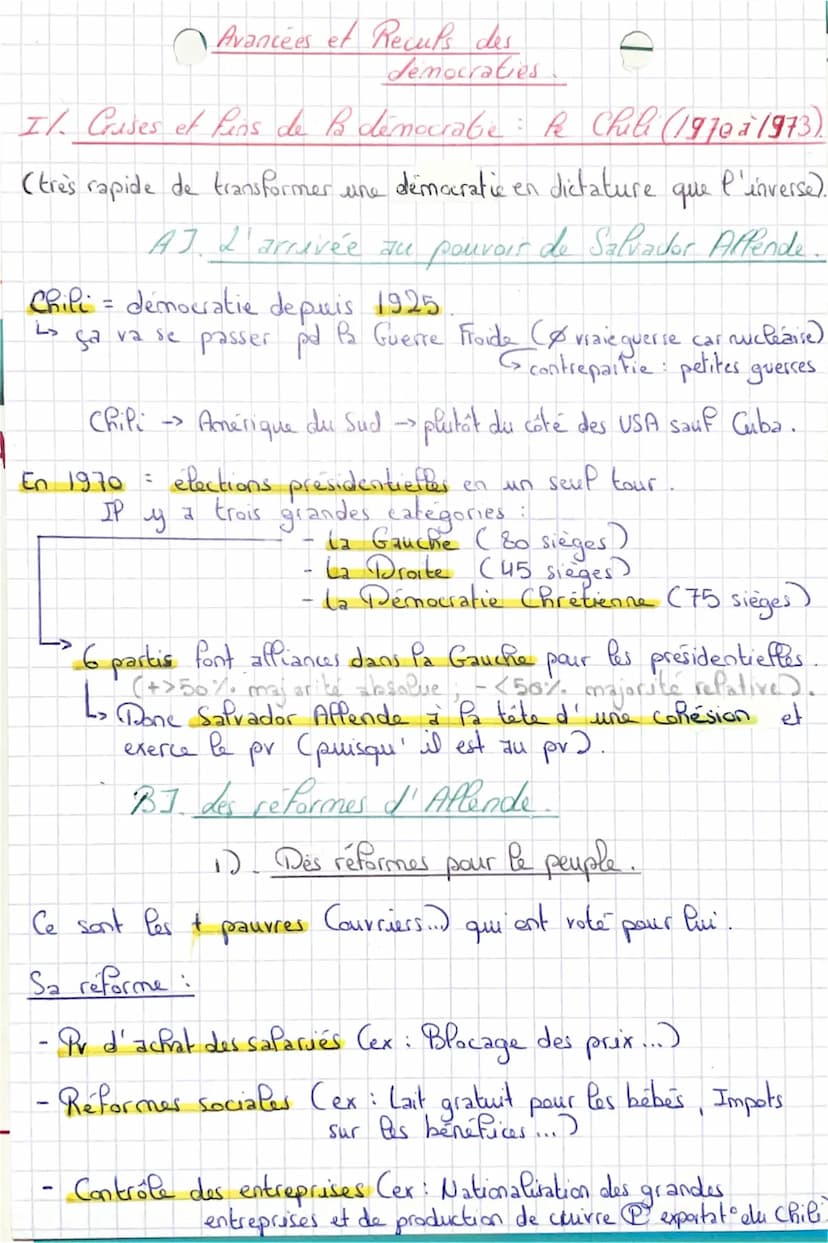 Avancées et Reculs des
démocraties.
I/. Crises et fins de la démocratie : le Chili (1970 à 1973).
(très rapide de transformer une démocratie en dictature que l'inverse).
A]. L'arrivée au pouvoir de Salvador Allende.
Chili = démocratie depuis 1925.
↳ ça va se passer pd la Guerre Froide (Ø vraie guerre car nucléaire)
↳ contrepartie : petites guerres
Chili -> Amérique du Sud -> plutôt du côté des USA sauf Cuba.
En 1970 = élections présidentielles en un seul tour.
Il y a trois grandes catégories :
- La Gauche (80 sièges)
- La Droite (45 sièges)
- La Démocratie Chrétienne (75 sièges)
6 partis font alliances dans la Gauche pour les présidentielles.
(+>50%. majorité absolue ; -<50%. majorité relative).
↳ Donc Salvador Allende à la tête d'une cohésion et
exerce le pv (puisqu'il est au pv).
B]. des réformes d'Allende.
1). Des réformes pour le peuple.
Ce sont les + pauvres (ouvriers...) qui ont voté pour lui.
Sa réforme :
- Pv d'achat des salariés (ex : Blocage des prix...)
- Réformes sociales (ex : Lait gratuit pour les bébés, Impots
sur les bénéfices...)
- Contrôle des entreprises (ex : Nationalisation des grandes
entreprises et de production de cuivre exportat° du Chili